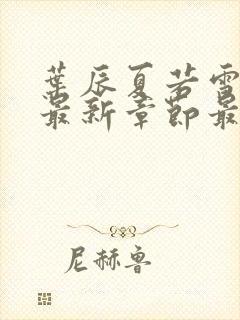 葉辰夏若雪
最新章節最
尼赫鲁